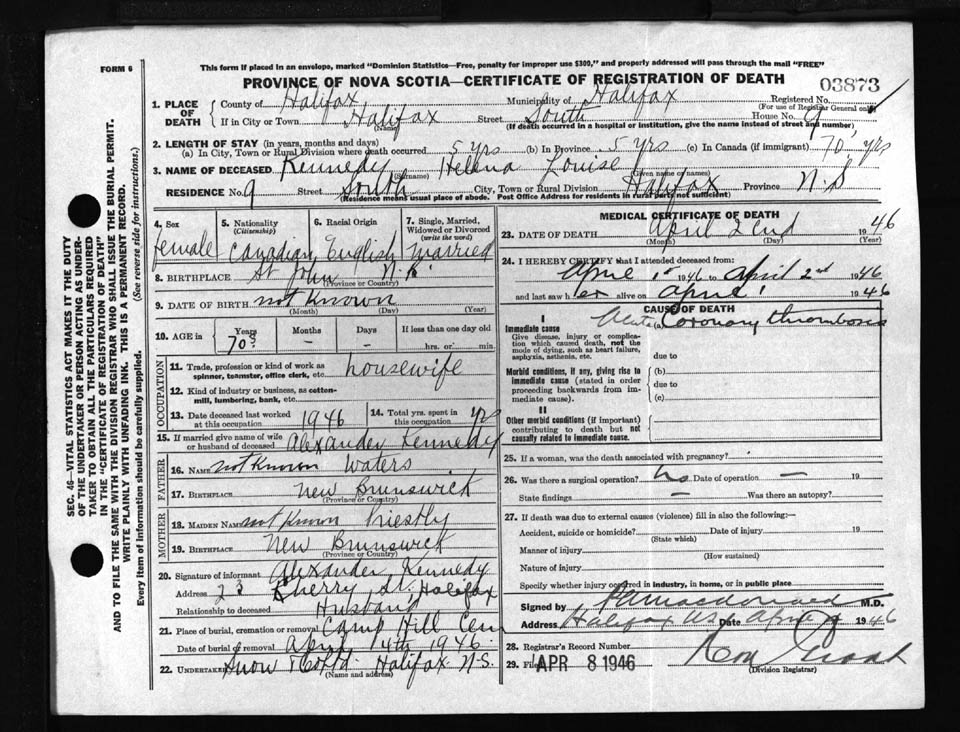 This form if placed in an envelope, marked "Dominion Statistics—Free, penalty for improper use $300," and properly addressed will pass through the mail "FREE"
FORM 6
PROVINCE OF NOVA SCOTIA—CERTIFICATE OF REGISTRATION OF DEATH
03873
1. PLACE OF DEATH
County of Halifax Municipality of Halifax Registered No.
(For use of Registrar General only)
If in City or Town Halifax Street South House No. 9
(Name) (If death occurred in a hospital or institution, give the name instead of street and number)
2. LENGTH OF STAY (in years, months and days)
(a) In City, Town or Rural Division where death occurred 5 yrs (b) In Province 5 yrs (c) In Canada (if immigrant) 70 yrs
3. NAME OF DECEASED Kennedy Helena Louise
(Surname) (Given name or names)
RESIDENCE No. 9 Street South City, Town or Rural Division Halifax Province N.S
(Residence means usual place of abode. Post Office Address for residents in rural parts not sufficient)
4. Sex female
5. Nationality (Citizenship) Canadian
6. Racial Origin English
7. Single, Married, Widowed or Divorced (write the word) Married
8. BIRTHPLACE St John N.B.
(Province or Country)
9. DATE OF BIRTH not Known
(Month) (Day) (Year)
10. AGE in Years 70 Months — Days — If less than one day hrs. or min.
OCCUPATION
11. Trade, profession or kind of work as spinner, teamster, office clerk, etc. housewife
12. Kind of industry or business, as cotton-mill, lumbering, bank, etc.
13. Date deceased last worked at this occupation 1946
14. Total yrs. spent in this occupation yrs
15. If married give name of wife or husband of deceased Alexander Kennedy
FATHER
16. Name not Known Waters
17. Birthplace New Brunswick
(Province or Country)
MOTHER
18. Maiden Name not Known Priestly
19. Birthplace New Brunswick
(Province or Country)
20. Signature of informant Alexander Kennedy
Address 23 Kherry St. Halifax
Relationship to deceased Husband
21. Place of burial, cremation or removal Camp Hill Cem
Date of burial or removal April 4th 1946
22. Undertaker Snow & Co Ltd. Halifax N.S.
(Name and address)
MEDICAL CERTIFICATE OF DEATH
23. DATE OF DEATH April 2cnd 1946
(Month) (Day) (Year)
24. I HEREBY CERTIFY that I attended deceased from:
April 1st 1946 to April 2nd 1946
and last saw her alive on April 1 1946
CAUSE OF DEATH
I
Immediate cause (a) Acute Coronary thrombosis
Give disease, injury or complication which caused death, not the mode of dying, such as heart failure, asphyxia, asthenia, etc.
due to
Morbid conditions, if any, giving rise to immediate cause (stated in order proceeding backwards from immediate cause).
(b)
due to
(c)
II
Other morbid conditions (if important) contributing to death but not causally related to immediate cause.
25. If a woman, was the death associated with pregnancy?
26. Was there a surgical operation? No Date of operation — 19
State findings — Was there an autopsy?
27. If death was due to external causes (violence) fill in also the following:—
Accident, suicide or homicide? Date of injury 19
(State which)
Manner of injury
(How sustained)
Nature of injury
Specify whether injury occurred in industry, in home, or in public place
Signed by M.D.
Address Halifax N.S. Date April 1946
28. Registrar's Record Number
29. Filed APR 8 1946
(Division Registrar)
SEC. 46—VITAL STATISTICS ACT MAKES IT THE DUTY
OF THE UNDERTAKER OR PERSON ACTING AS UNDER-
TAKER TO OBTAIN ALL THE PARTICULARS REQUIRED
IN THE "CERTIFICATE OF REGISTRATION OF DEATH"
AND TO FILE THE SAME WITH THE DIVISION REGISTRAR WHO SHALL ISSUE THE BURIAL PERMIT.
WRITE PLAINLY WITH UNFADING INK. THIS IS A PERMANENT RECORD.
Every item of information should be carefully supplied. (See reverse side for instructions.)